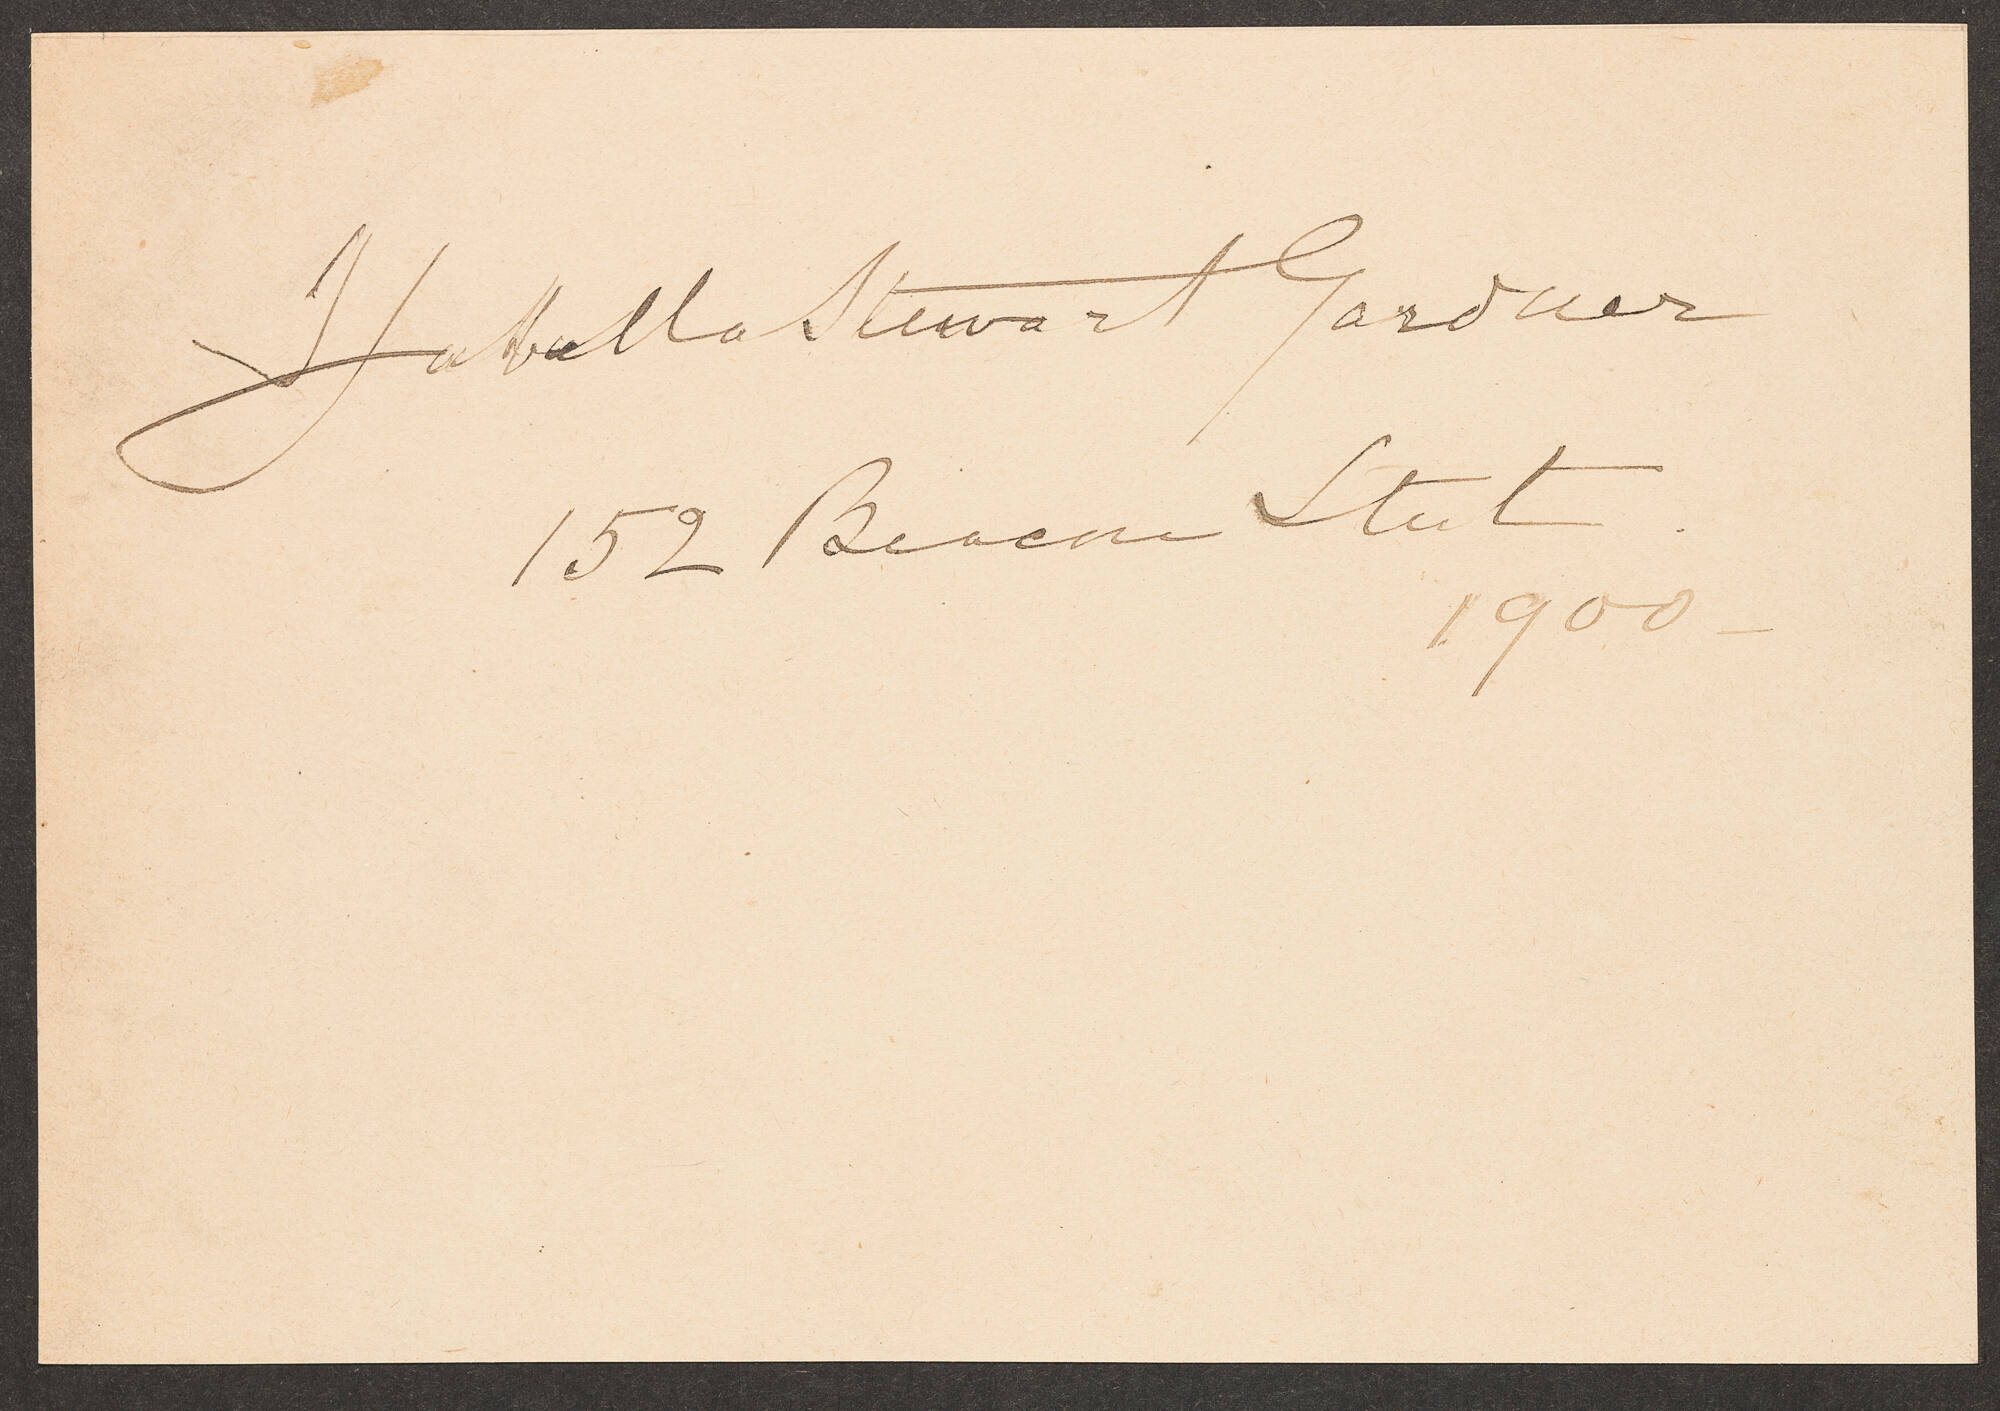 Isabella Stewart Gardner
152 Beacon Street.
1900 -